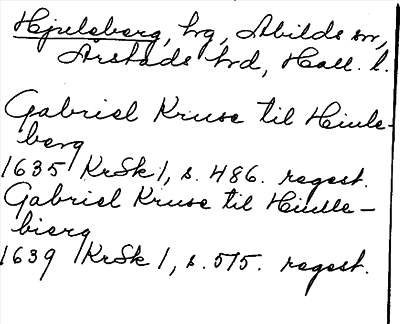 Hjulsberg, hg, Abilds sn,
Årstads hd, Hall. l.
Gabriel Kruse til Hiule-
berg
1635 KrSk 1, s. 486. regest.
Gabriel Kruse til Hiulle-
bierg
1639 KrSk 1, s. 515. regest.